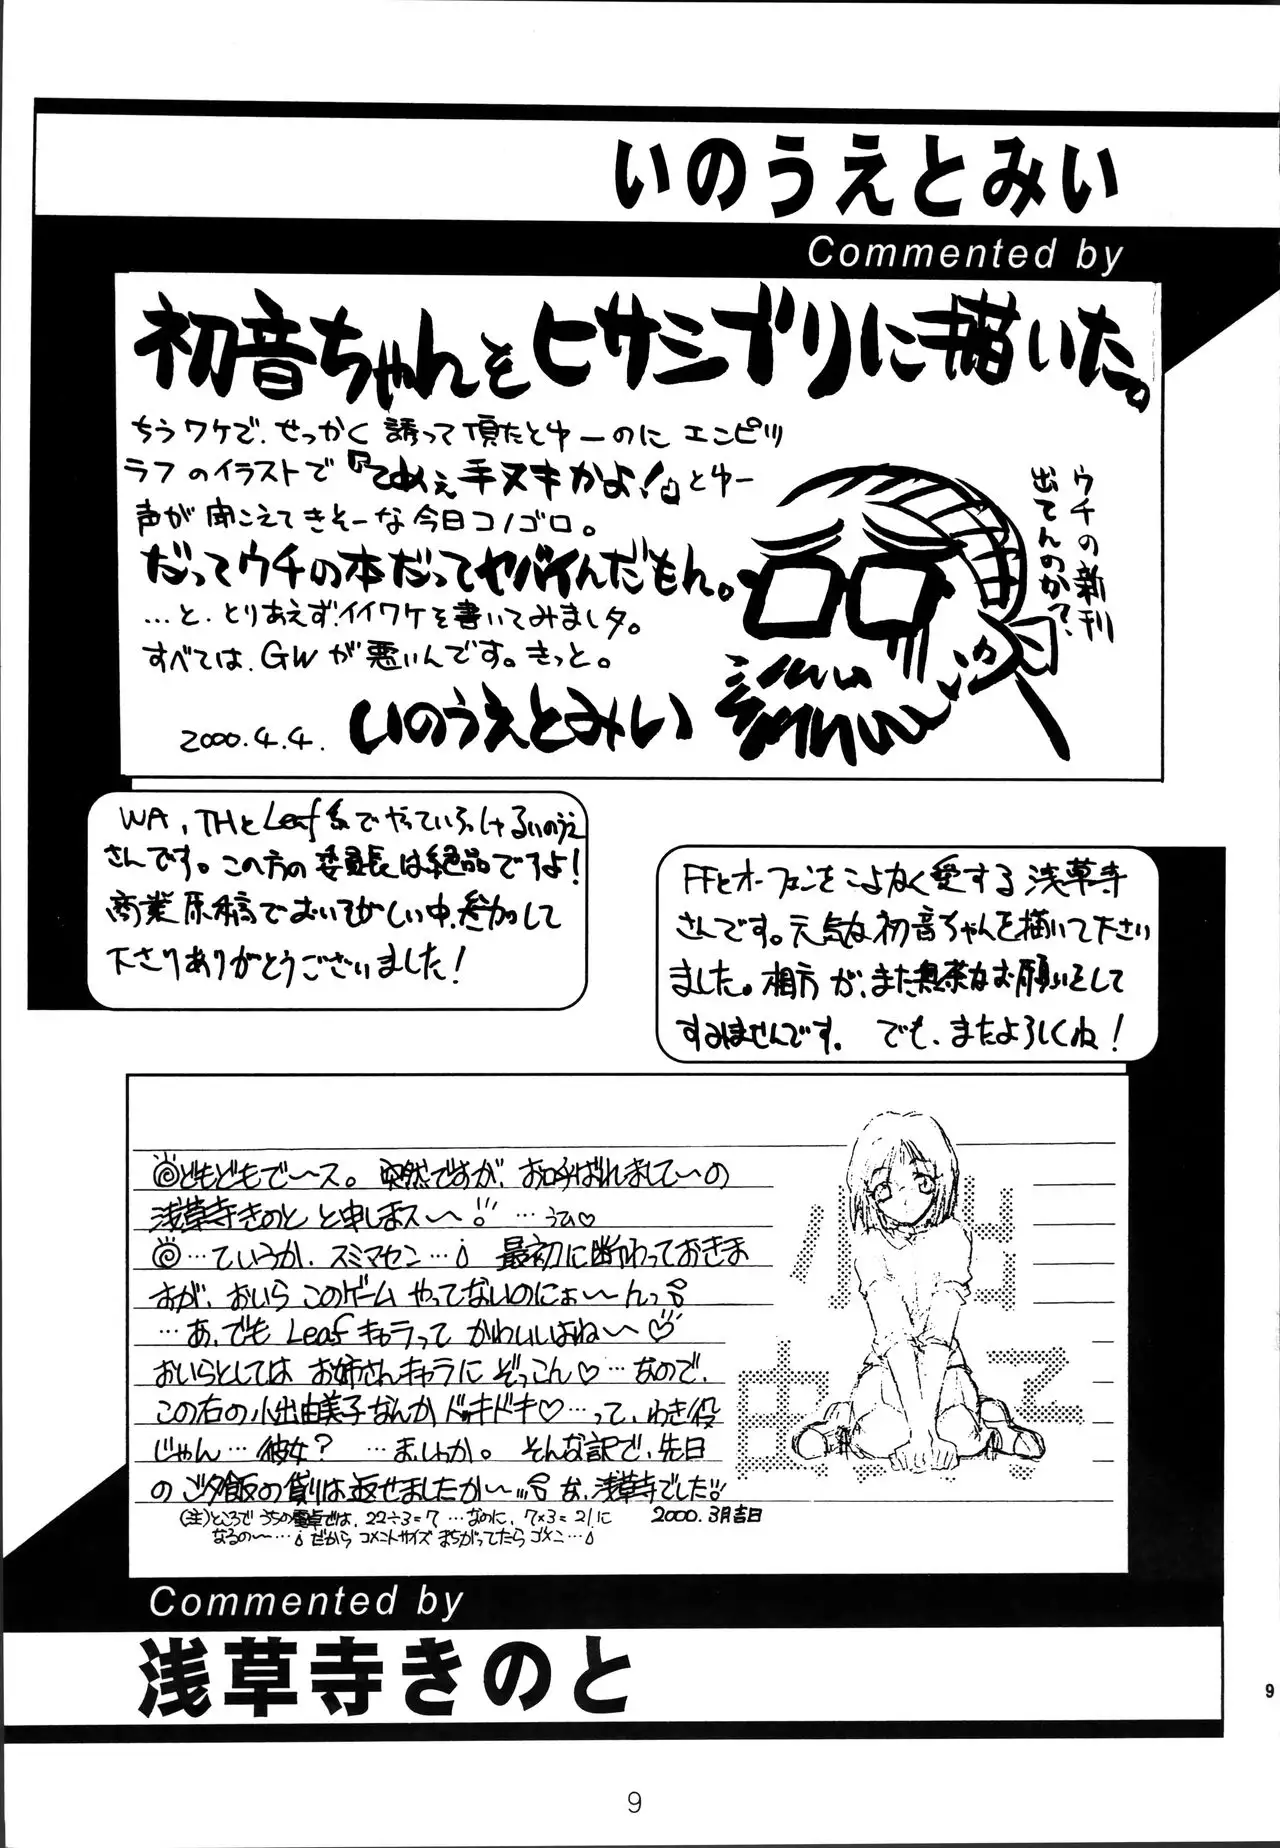 いのうえとみい
Commented by
初音ちゃんをヒサシブリに描いた。
ちうワケで、せっかく誘って頂たとゆーのに エンピツ
ラフのイラストで『てめぇ手ヌキかよ!』とゆー
声が聞こえてきそーな今日コノゴロ。
だってウチの本だってヤバイんだもん。
…と、とりあえず、イイワケを書いてみましタ。
すべては、GWが悪いんです。きっと。
2000.4.4. いのうえとみい
ウチの新刊
出てんのか?
WA、THとLeaf系でやっていらっしゃるいのうえ
さんです。この方の委員長は絶品ですよ!
商業原稿でおいそがしい中、参加して
下さりありがとうございました!
FFとオーフェンをこよなく愛する浅草寺
さんです。元気な初音ちゃんを描いて下さい
ました。相方が、また無茶なお願いをして
すみませんです。 でも、またよろしくね!
どもどもで〜ス。突然ですが、お呼ばれしまして〜の
浅草寺きのと と申しまス〜。…うひ♡
…ていうか、スミマセン… 最初に断わっておきま
すが、おいら このゲーム やってないのにぉ〜んっ
…あ、でも Leafキャラって かわいいよね〜♡
おいらとしては お姉さんキャラに ぞっこん♡…なので、
この右の小出由美子なんか ドッキドキ♡…って、わき役
じゃん…彼女? …ま、しゃか。そんな訳で、先日
のご夕飯の借りは返せましたか〜… な、浅草寺でした
(注)ところで うちの電卓では、22÷3=7 …なのに、7×3=21に
なるの〜… だから コメントサイズ まちがってたら ゴメン…
2000.3月吉日
小出
由美子
Commented by
浅草寺きのと
9
9